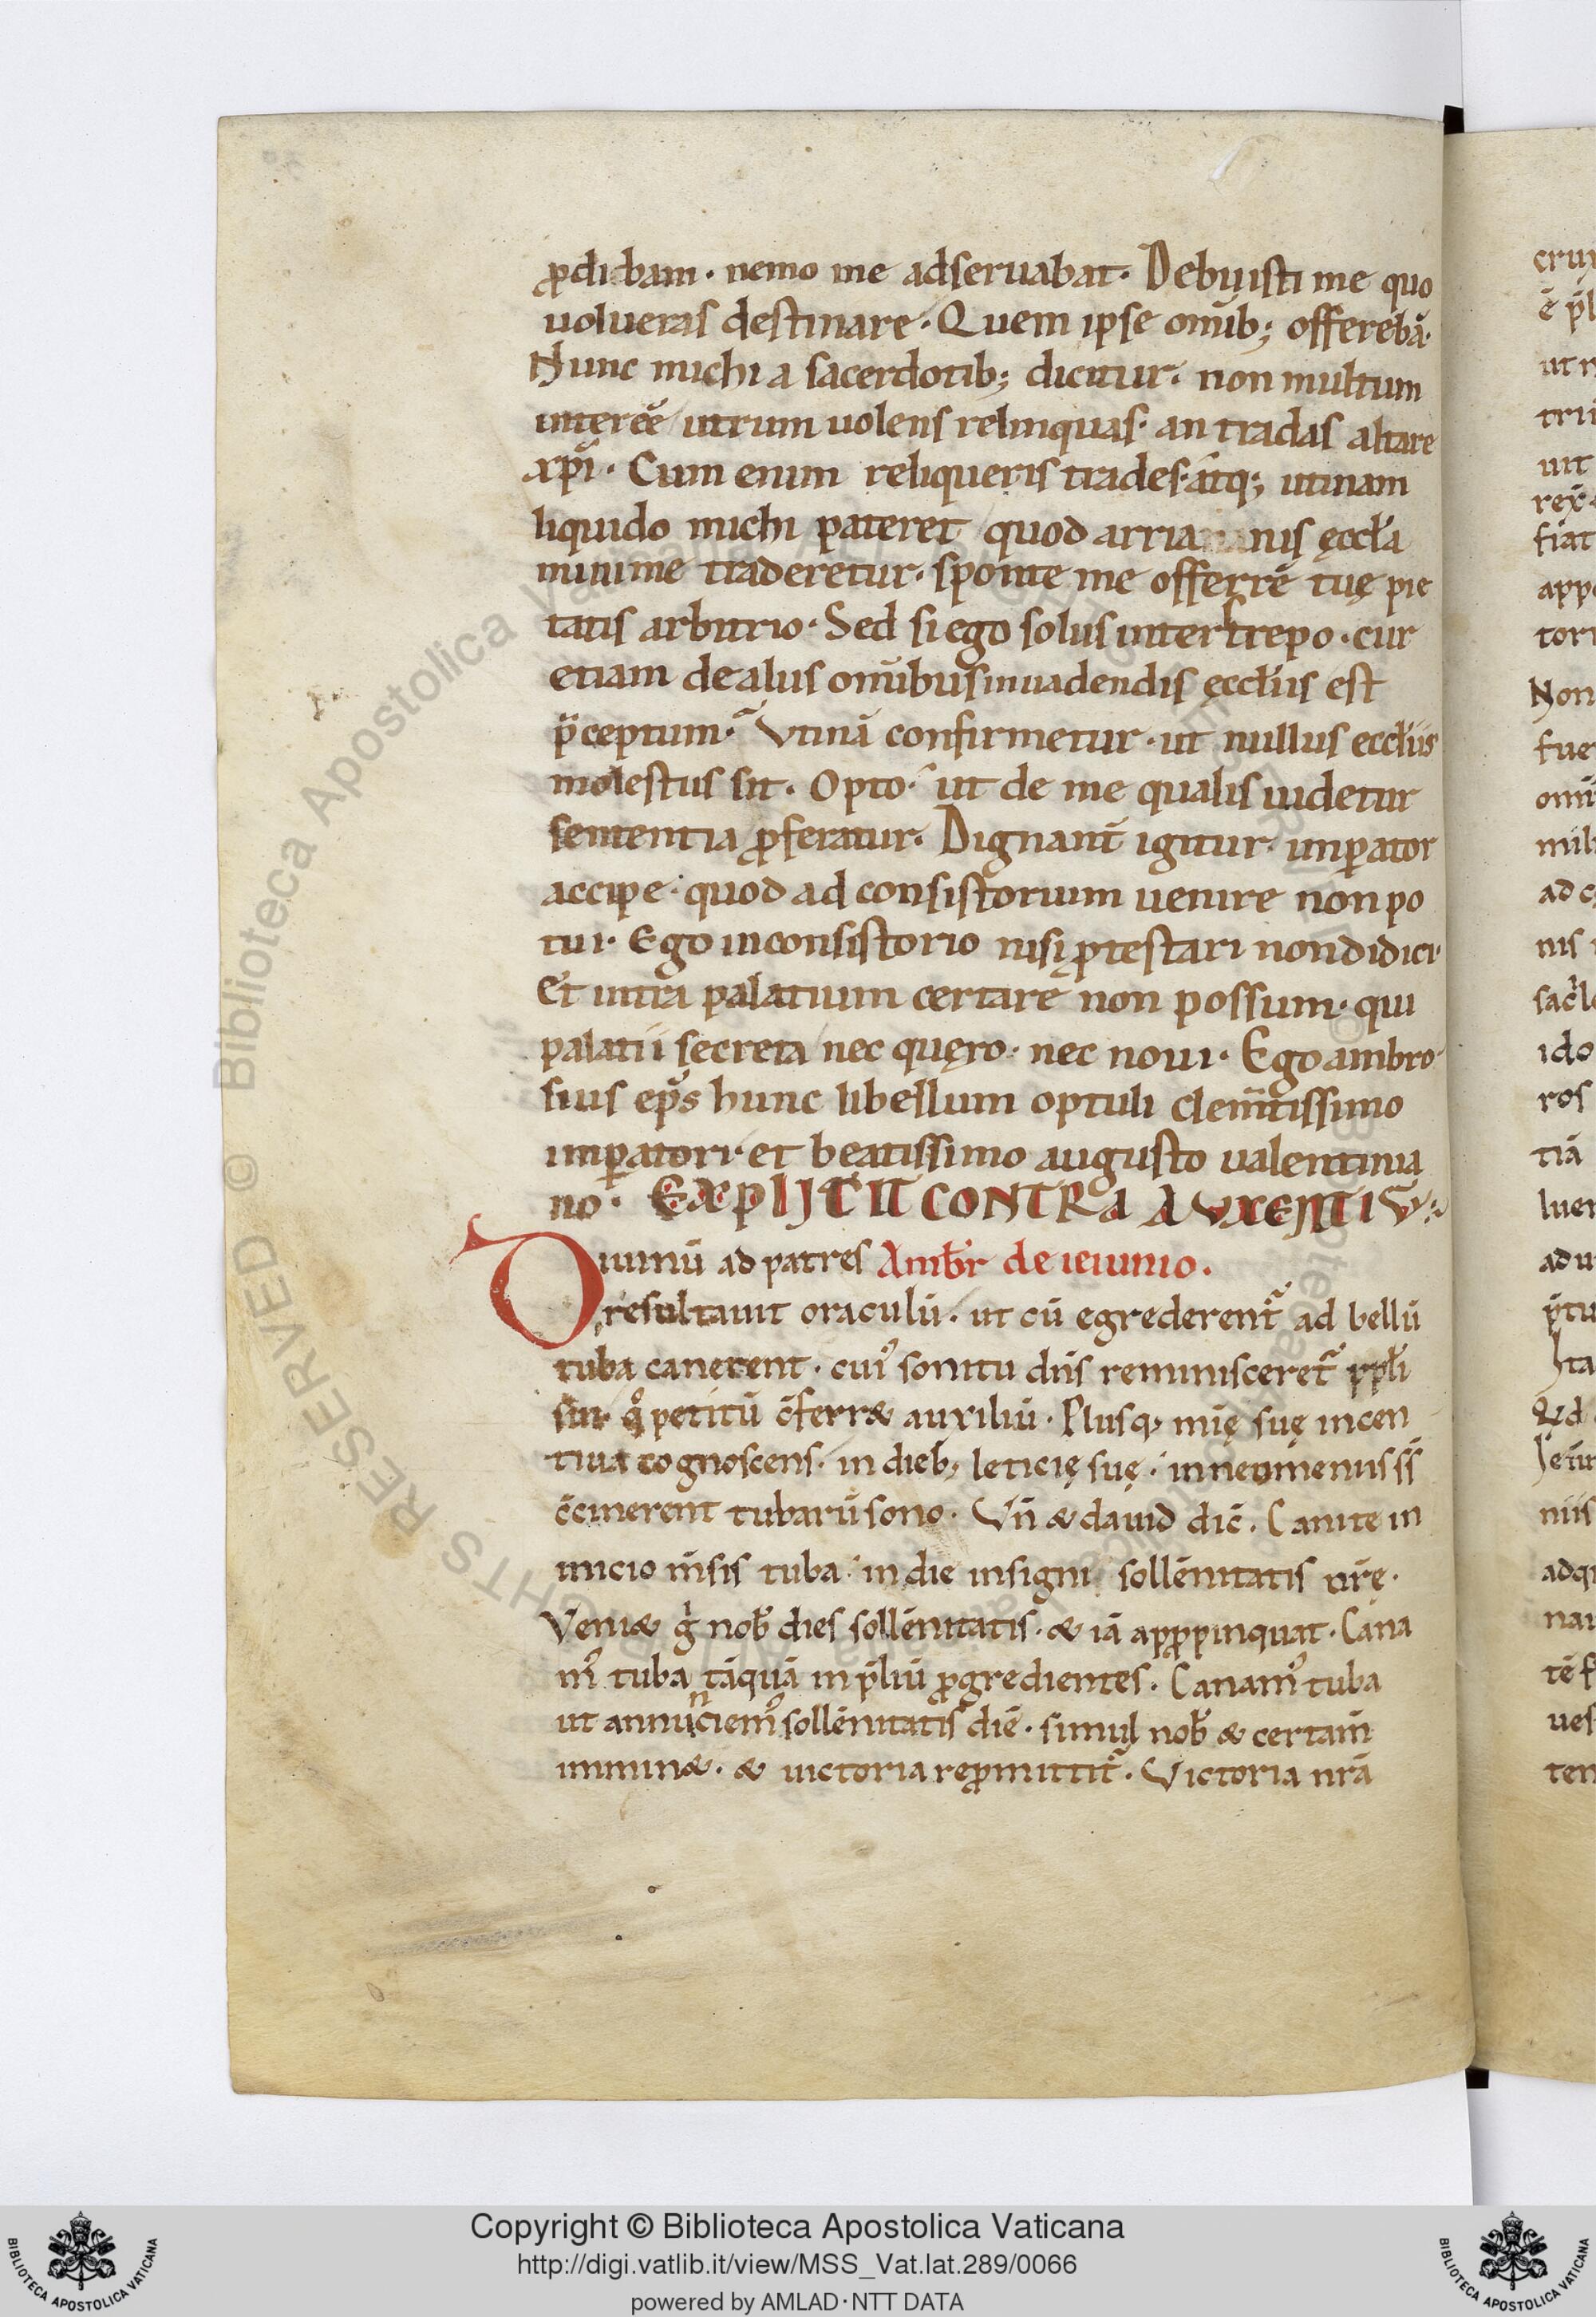 ꝓdibam · nemo me adseruabat · Debuisti me quo
uolueras destinare · Quem ipse omīb; offerebā ·
Nunc michi a sacerdotib; dicitur · non multum
interēē utrum uolens relinquas · an tradas altare
xp̄i · Cum enim reliqueris trades · atq; utinam
liquido michi pateret quod arria nis ęccl̄a
minime traderetur · sponte me offerrē tuę pie
tatis arbitrio · Sed si ego solus inter trepo · cur
etiam de aliis om̄ibus inuadendis ęccl̄iis est
p̄ceptum · Vtinā confirmetur · ut nullus eccl̄iis
molestus sit · Opto · ut de me qualis uidetur
sententia ꝓferatur · Dignant̄ igitur · imꝑator
accipe · quod ad consistorium uenire non po
tui · Ego in consistorio nisi ꝓtestari non didici ·
Et intra palatium certare non possum · qui
palatii secreta nec quęro · nec noui · Ego ambro
sius ep̄s hunc libellum optuli clem̄tissimo
imꝑatori · et beatissimo augusto ualentinia
no · EXPLICIT CONTRA AVXENTIV̄ :
Diuinū ad patres Ambr̄ de ieiunio .
resultauit oraculū · ut cū egrederent᷑ ad bellū
tuba canerent · cuiꝰ sonitu dn̄s reminisceret᷑ ppl̄i
sui qͦ petitū c̄ferret auxiliū · Plusq; mię suę incen
tiua cognoscens · in dieb; leticię suę · in neomeniis ss̄
c̄cinerent tubarū sono · Vn̄ & dauid dic̄ . Canite in
inicio m̄sis tuba · in die insigni sollēnitatis ur̄ę ·
Veni& gͥ nob̄ dies sollēnitatis · & iā apꝓpinquat · Cana
mꝰ tuba tāquā in p̄liū ꝓgredientes . Canamꝰ tuba
ut annunciemꝰ sollēnitatis diē · simul nob̄ & certam̄
immin& · & uictoria reꝓmittit᷑ . Victoria nr̄a
Copyright © Biblioteca Apostolica Vaticana
http://digi.vatlib.it/view/MSS_Vat.lat.289/0066
powered by AMLAD·NTT DATA